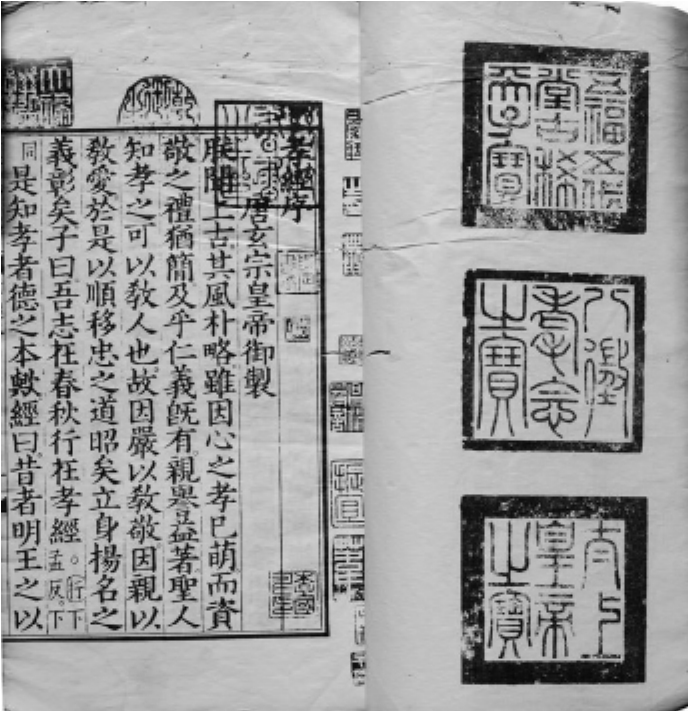 五福五代
堂古稀
天子寶
八徵
耄念
之寶
太上
皇帝
之寶
孝經序
唐玄宗皇帝御製
朕聞上古其風朴略雖因心之孝已萌而資
敬之禮猶簡及乎仁義既有親譽益著聖人
知孝之可以教人也故因嚴以教敬因親以
教愛於是以順移忠之道昭矣立身揚名之
義彰矣子曰吾志在春秋行在孝經。行下孟反。下
同是知孝者德之本歟經曰昔者明王之以